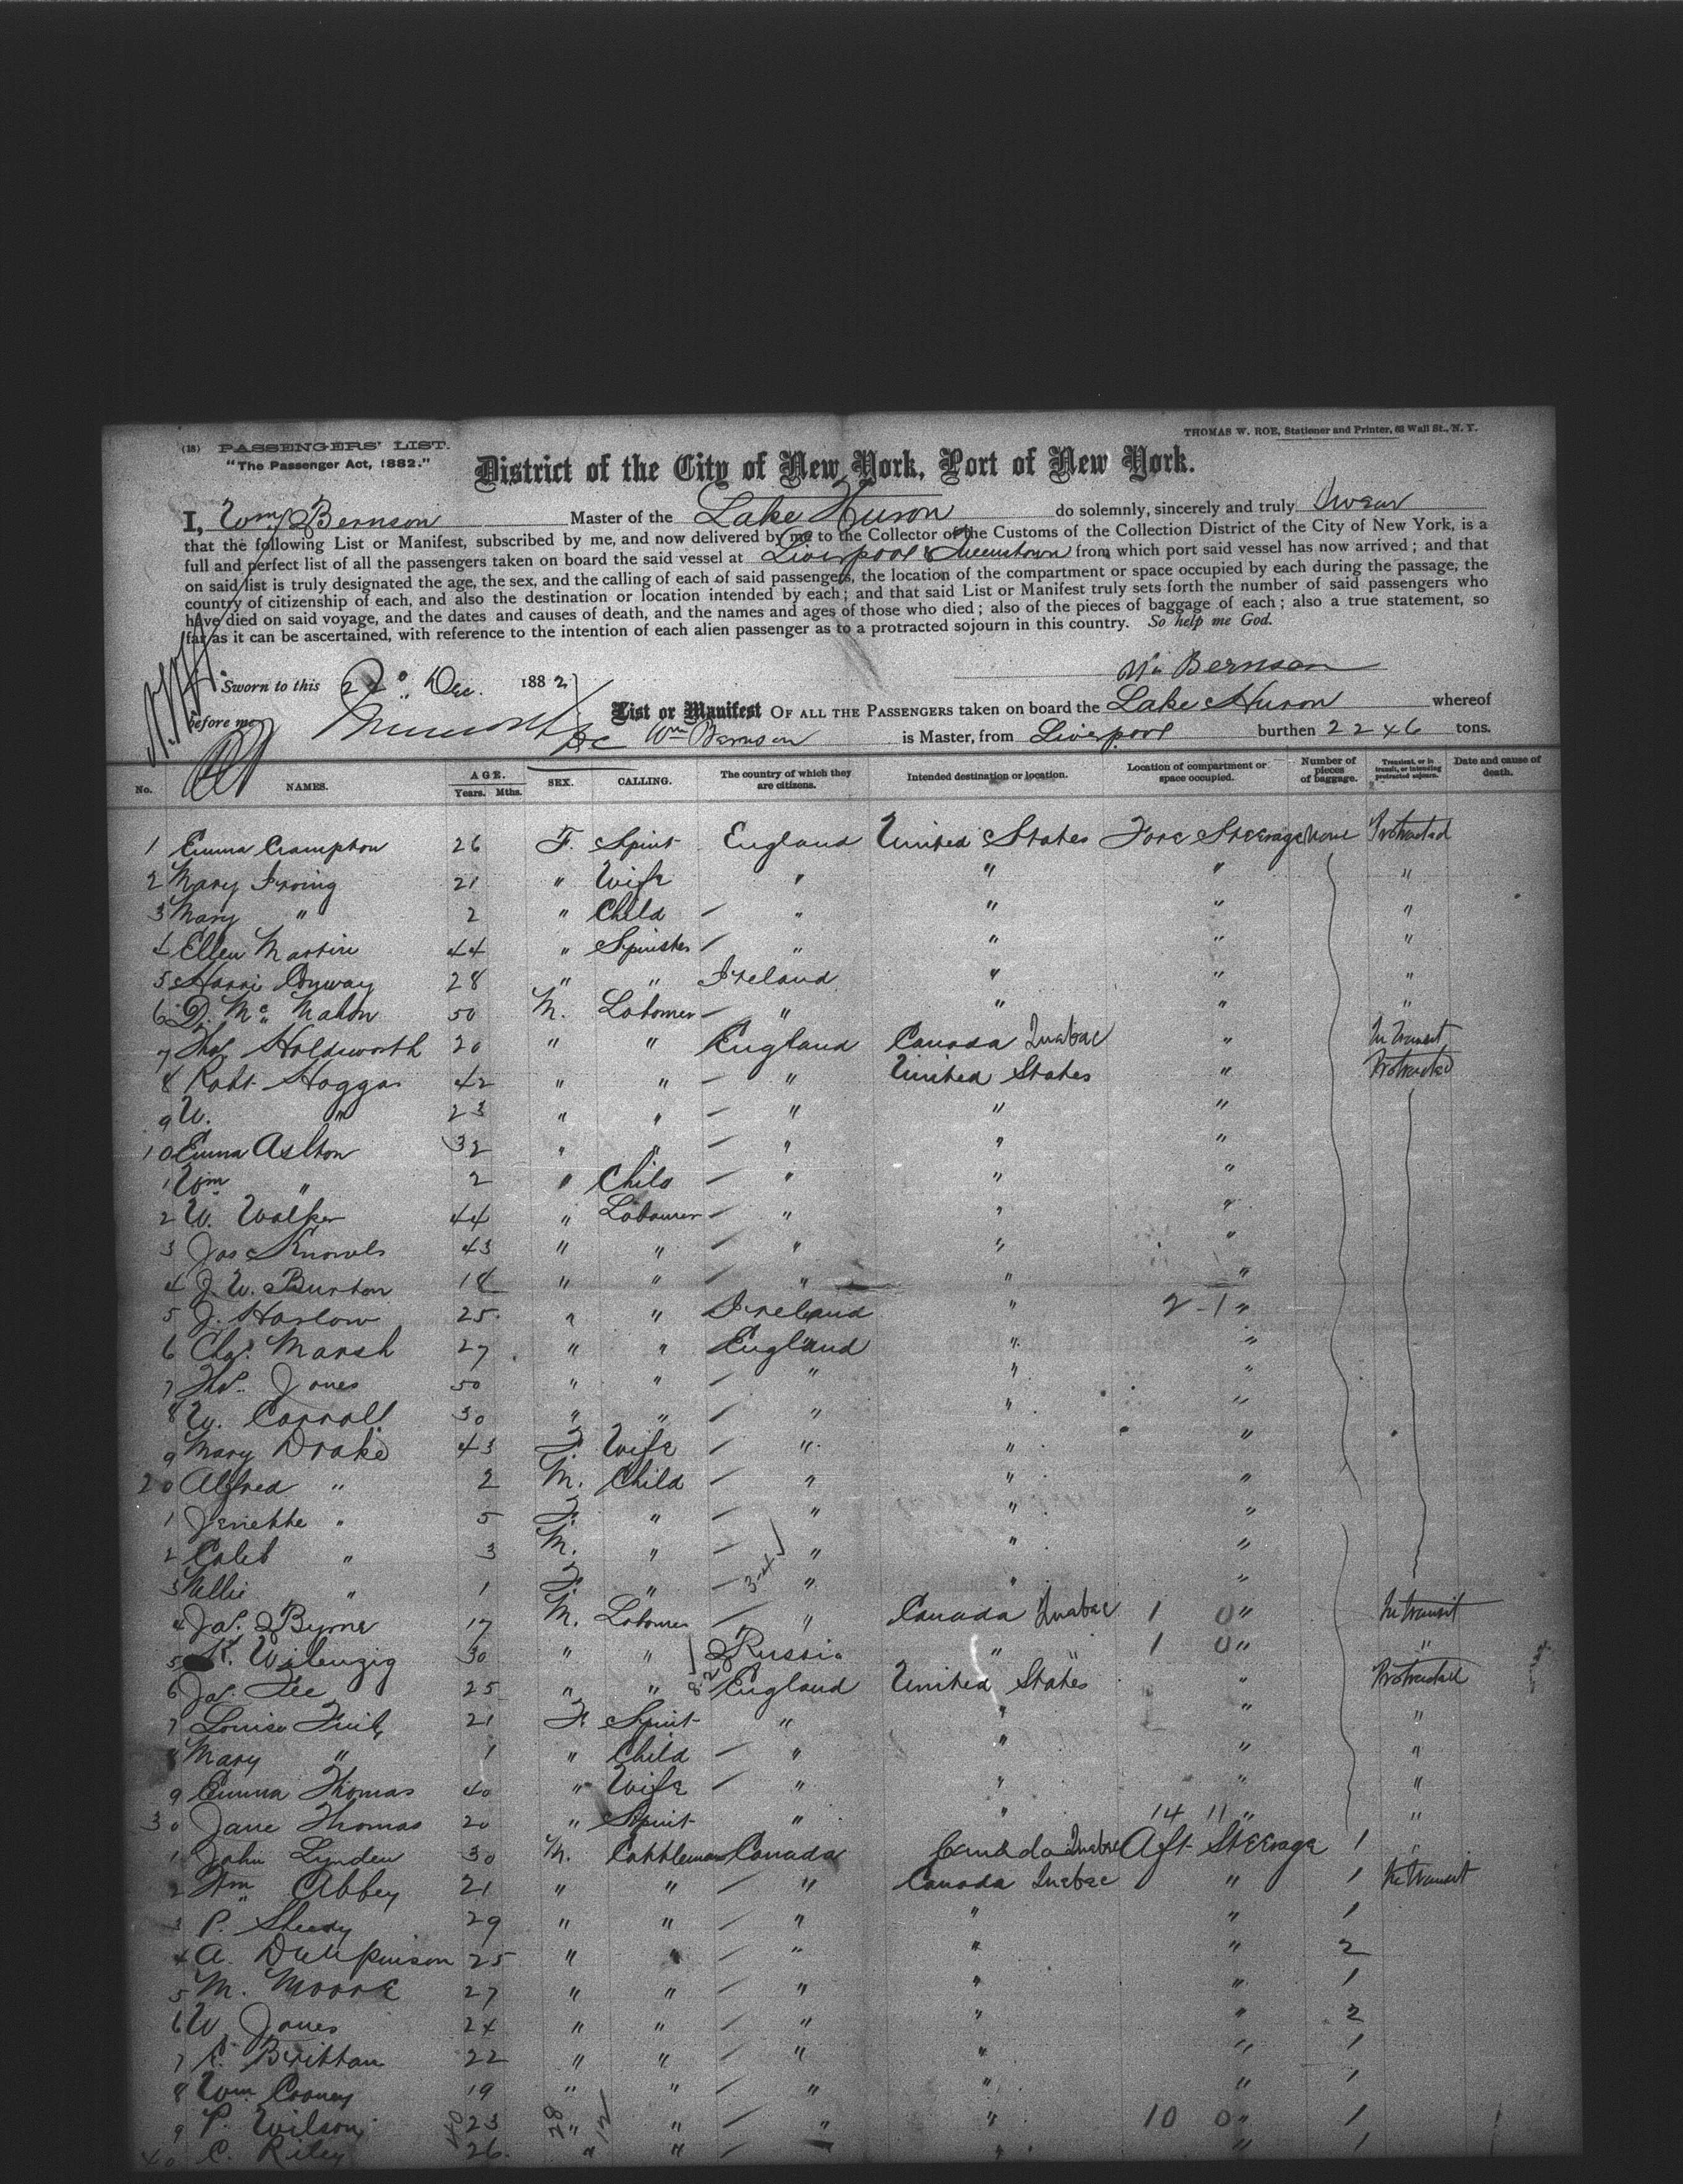 (18) PASSENGERS' LIST.
THOMAS W. ROE, Stationer and Printer, Wall St., N. Y.
"The Passenger Act, 1882."
District of the City of New York, Port of New York.
I, Wm Bernson Master of the Lake Huron do solemnly, sincerely and truly Swear
that the following List or Manifest, subscribed by me, and now delivered by me to the Collector of the Customs of the Collection District of the City of New York, is a
full and perfect list of all the passengers taken on board the said vessel at Liverpool & Queenstown from which port said vessel has now arrived; and that
on said list is truly designated the age, the sex, and the calling of each of said passengers, the location of the compartment or space occupied by each during the passage, the
country of citizenship of each, and also the destination or location intended by each; and that said List or Manifest truly sets forth the number of said passengers who
have died on said voyage, and the dates and causes of death, and the names and ages of those who died; also of the pieces of baggage of each; also a true statement, so
far as it can be ascertained, with reference to the intention of each alien passenger as to a protracted sojourn in this country. So help me God.
Wm Bernson
Sworn to this 22 Dec. 1882
before me
List or Manifest OF ALL THE PASSENGERS taken on board the Lake Huron whereof
Wm Bernson is Master, from Liverpool burthen 2246 tons.
No. NAMES. AGE. Years. Mths. SEX. CALLING. The country of which they are citizens. Intended destination or location. Location of compartment or space occupied. Number of pieces of baggage. Transient, or in transit, or intending protracted sojourn. Date and cause of death.
1 Emma Crampton 26 F. Spinst England United States Fore Steerage None Protracted
2 Mary Irving 21 " Wife " " " "
3 Mary " 2 " Child " " " "
4 Ellen Martin 44 " Spinster " " " "
5 Conway 28 " " Ireland " " "
6 D. Mc Mahon 50 M. Labourer " " " "
7 Thos. Holdsworth 20 " " England Canada Quebec " In transit
8 Robt Hoggar 42 " " " United States " Protracted
9 W. " 23 " " " " "
10 Emma Ashton 32 " " " " "
1 Wm " 2 " Child " " "
2 W. Walker 44 " Labourer " " "
3 Jas Knowls 43 " " " " "
4 J. W. Burton 18 " " " " "
5 J. Harlow 25 " " Ireland " 2-1 "
6 Chas. Marsh 27 " " England " "
7 Thos. Jones 50 " " " " "
8 W. Carroll 30 " " " " "
9 Mary Drake 43 F. Wife " " "
20 Alfred " 2 M. Child " " "
1 Jenette " 5 F. " " " "
2 Caleb " 3 M. " " " "
3 Nellie " 1 F. " " " "
4 Jas. Byrne 17 M. Labourer " Canada Quebec 1 0 " In transit
5 K. Wilenzig 30 " " Russia " " 1 0 " "
6 Jas. Lee 25 " " England United States " Protracted
7 Louisa 21 F. Spinst " " " "
8 Mary " 1 " Child " " " "
9 Emma Thomas 40 " Wife " " " "
30 Jane Thomas 20 " Spinst " " 14 11 " "
1 John Lynden 30 M. Cattleman Canada Canada Quebec Aft Steerage 1 "
2 Wm Abbey 21 " " " Canada Quebec " 1 In transit
3 P. Sheedy 29 " " " " " 1
4 A. 25 " " " " " 2
5 M. Moore 27 " " " " " 1
6 W Jones 24 " " " " " 2
7 Brittan 22 " " " " " 1
8 Wm Cooney 19 " " " " " 1
9 P. Wilson 23 " " " " 10 0 " 1
40 C. Riley 26 " " " " " 1